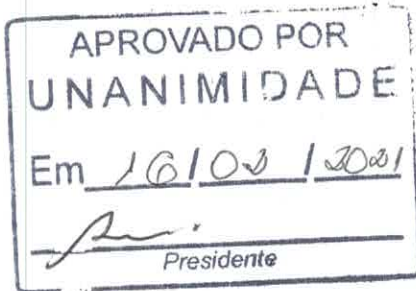 APROVADO POR
UNANIMIDADE
Em 16/02/2021
Presidente